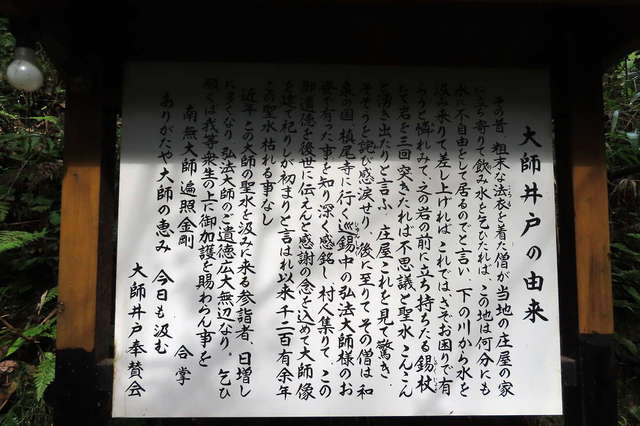 大師井戸の由来
その昔、粗末な法衣を着た僧が当地の庄屋の家
に立ち寄りて飲み水を乞ひたれば、この地は何分にも
水に不自由をして居るのでと言い、下の川から水を
汲み来りて差し上げれば、これではさぞお困りで有
らうと憐れみて、之の岩の前に立ち持ちたる錫杖
にて岩を三回突きたれば不思議と聖水こんこん
と湧き出たりと言ふ。庄屋これを見て驚き、
そそうを詫び感涙せり。後に至りてその僧は和
泉の国槙尾寺に行く巡錫中の弘法大師様のお
姿で有った事を知り深く感銘し、村人集りて、この
御遺徳を後世に伝えんと感謝の念を込めて大師像
を建て祀りしが初まりと言はれ以来千二百有余年
この聖水枯れる事なし
近年、この大師の聖水を汲みに来る参詣者、日増し
に多くなり、弘法大師のご遺徳広大無辺なり。乞ひ
願くば我等衆生の上に御加護を賜わらん事を
合掌
南無大師遍照金剛
ありがたや大師の恵み 今日も汲む
大師井戸奉賛会